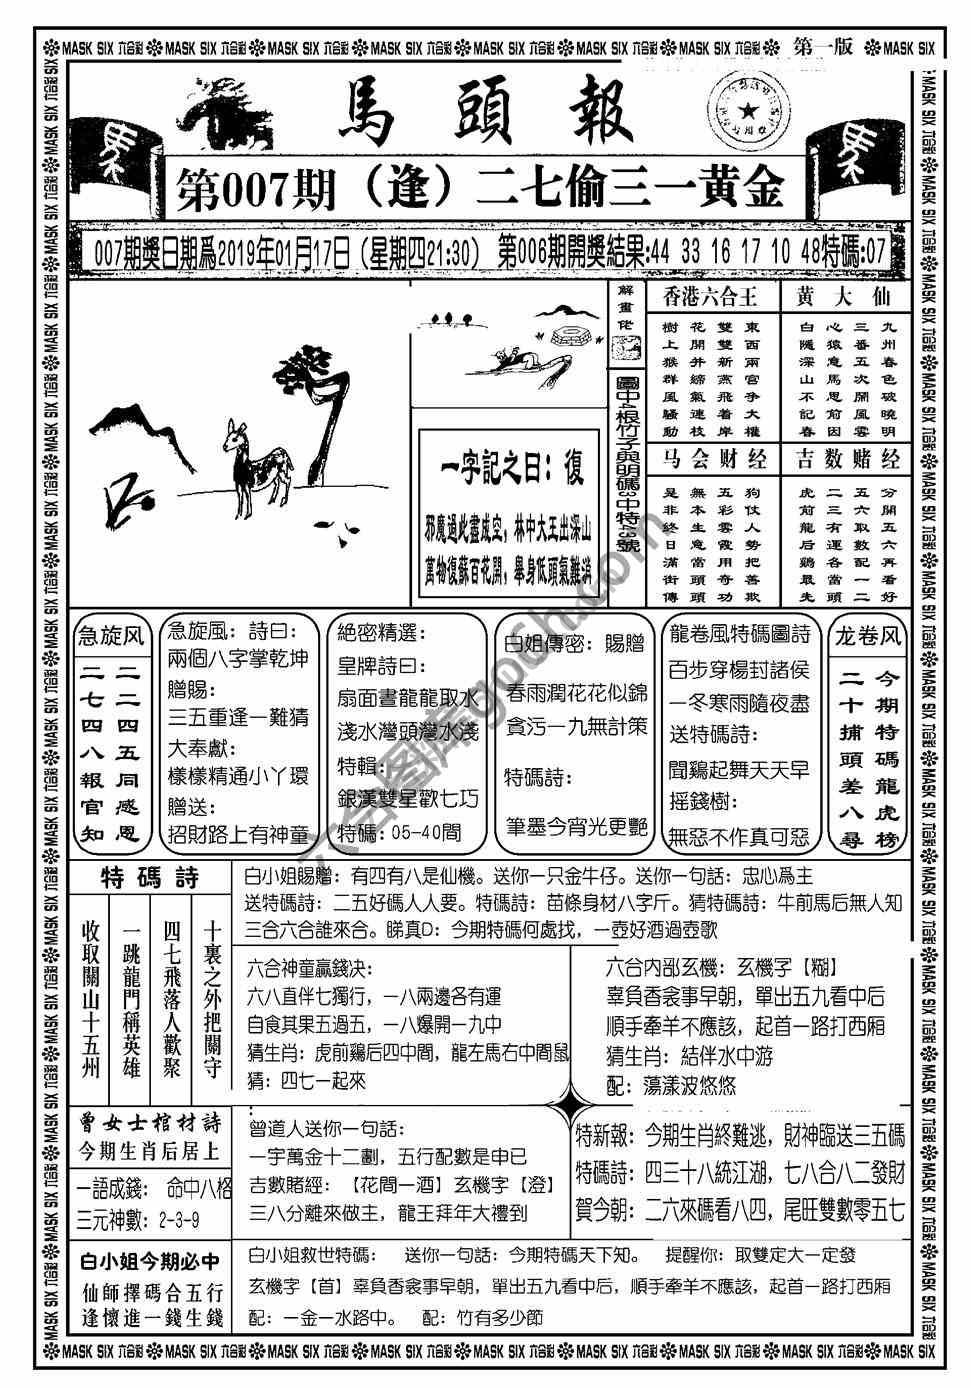 MASK SIX 六合彩 MASK SIX 六合彩 MASK SIX 六合彩 MASK SIX 六合彩 MASK SIX 六合彩 MASK SIX 六合彩 MASK SIX 六合彩 第一版 MASK SIX
馬頭報
第007期（逢）二七偷三一黄金
007期獎日期爲2019年01月17日（星期四21:30） 第006期開獎結果:44 33 16 17 10 48特碼:07
解畫佬
圖中4根竹子與明碼33中特23號
一字記之曰：復
邪魔過此盡成空，林中大王出深山
萬物復蘇百花開，舉身低頭氣難消
香港六合王
東西兩宫争大權
雙雙新燕飛着岸
花開并締氣連枝
樹上猴群風騷動
黄大仙
九州春色破曉明
三番五次開風雲
心猿意馬思前因
白隱深山不記春
马会财经
狗仗人勢把善欺
五彩雲霞用奇功
無本生意當頭頭
是非終日滿街傳
吉数赌经
分開五六再看好
五六取數配一二
二三有運各當頭
虎前龍后鷄最先
急旋风
二二四五同感恩
二七四八報官知
急旋風：詩曰：
兩個八字掌乾坤
贈賜：
三五重逢一難猜
大奉獻：
樣樣精通小丫環
贈送：
招財路上有神童
絶密精選：
皇牌詩曰：
扇面晝龍龍取水
淺水灣頭灣水淺
特輯：
銀漢雙星歡七巧
特碼：05-40間
白姐傳密：賜贈
春雨潤花花似錦
貪污一九無計策
特碼詩：
筆墨今宵光更艷
龍卷風特碼圖詩
百步穿楊封諸侯
一冬寒雨隨夜盡
送特碼詩：
聞鷄起舞天天早
摇錢樹：
無惡不作真可惡
龙卷风
今期特碼龍虎榜
二十捕頭差八尋
特碼詩
十裏之外把關守
四七飛落人歡聚
一跳龍門稱英雄
收取關山十五州
白小姐賜贈：有四有八是仙機。送你一只金牛仔。送你一句話：忠心爲主
送特碼詩：二五好碼人人要。特碼詩：苗條身材八字斤。猜特碼詩：牛前馬后無人知
三合六合誰來合。睇真D：今期特碼何處找，一壺好酒過壺歌
六合神童贏錢决：
六八直伴七獨行，一八兩邊各有運
自食其果五過五，一八爆開一九中
猜生肖：虎前鷄后四中間，龍左馬右中間鼠
猜：四七一起來
六合内部玄機：玄機字【糊】
辜負香衾事早朝，單出五九看中后
順手牽羊不應該，起首一路打西厢
猜生肖：結伴水中游
配：蕩漾波悠悠
曾女士棺材詩
今期生肖后居上
一語成錢：命中八格
三元神數：2-3-9
曾道人送你一句話：
一字萬金十二劃，五行配數是申已
吉數賭經：【花間一酒】玄機字【澄】
三八分離來做主，龍王拜年大禮到
特新報：今期生肖終難逃，財神臨送三五碼
特碼詩：四三十八統江湖，七八合八二發財
賀今朝：二六來碼看八四，尾旺雙數零五七
白小姐今期必中
仙師擇碼合五行
逢懷進一錢生錢
白小姐救世特碼： 送你一句話：今期特碼天下知。 提醒你：取雙定大一定發
玄機字【首】辜負香衾事早朝，單出五九看中后，順手牽羊不應該，起首一路打西厢
配：一金一水路中。 配：竹有多少節
MASK SIX 六合彩 MASK SIX 六合彩 MASK SIX 六合彩 MASK SIX 六合彩 MASK SIX 六合彩 MASK SIX 六合彩 MASK SIX 六合彩 MASK SIX 六合彩 MASK SIX
六合图库gocn.com